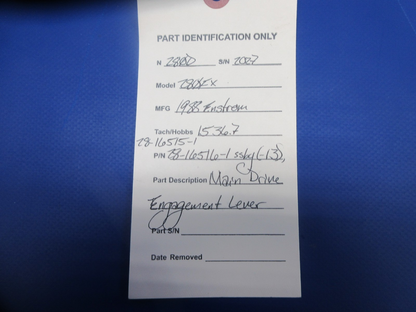 PART IDENTIFICATION ONLY
N 280D S/N 2027
Model 280FX
MFG 1988 Enstrom
Tach/Hobbs 1536.7
28-16515-1
P/N 28-16516-1 ssby(-13),
Part Description Main Drive
Engagement Lever
Part S/N
Date Removed